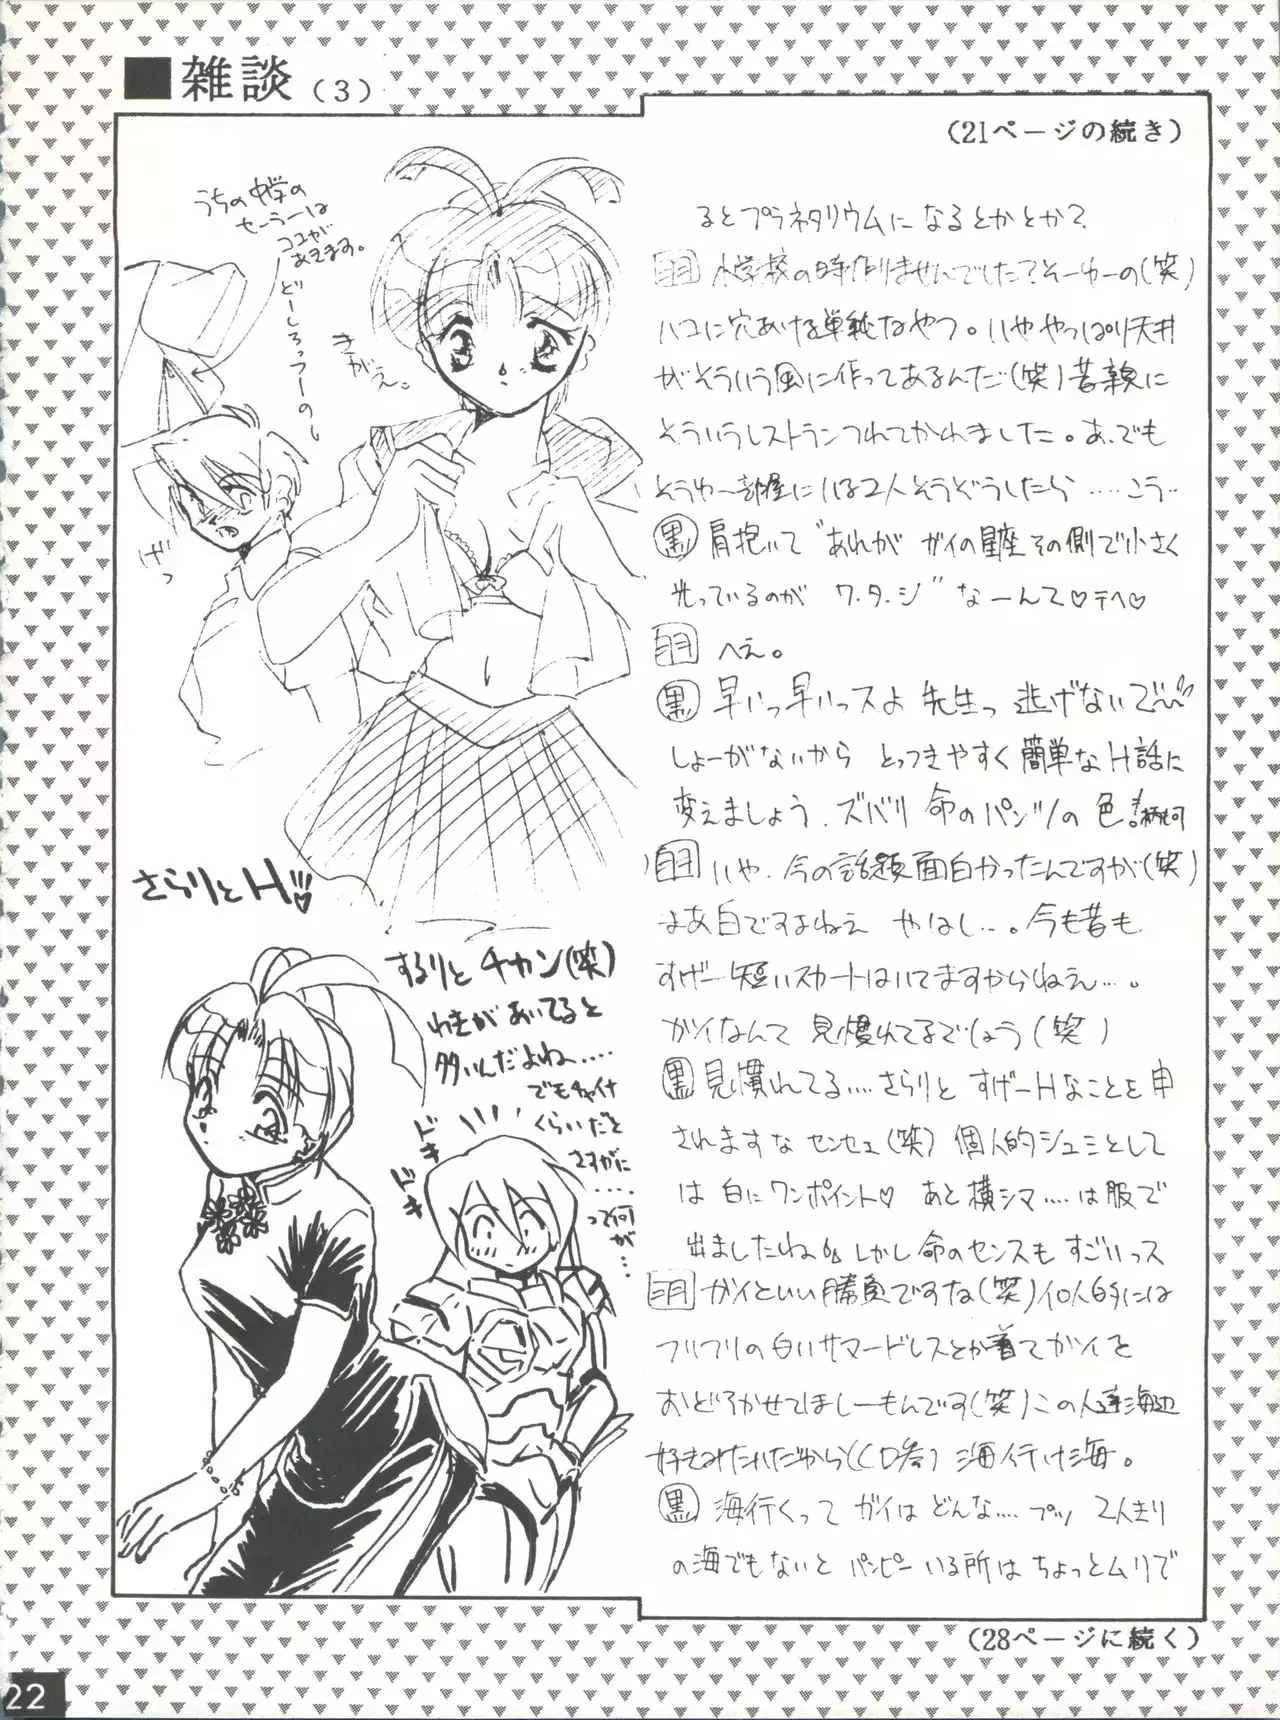 ■雑談（3）
うちの中学の
セーラーは
ココが
あきます。
どーしろっつーの
きがえ。
げっ
さらりとH
するりと チカン(笑)
わきがあいてると
多いんだよね‥‥
でもチャイナ
くらいだと
さすがに
‥‥
って何
が‥
ドキ
ドキ
（21ページの続き）
るとプラネタリウムになるとかとか？
羽 小学校の時作りませんでした？そーゆーの(笑)
ハコに穴あける単純なやつ。いややっぱり天井
がそういう風に作ってあるんだ(笑)昔親に
そういうレストランつれてかれました。あ、でも
そうゆー部屋にいる2人そうぞうしたら‥‥こう‥
黒 肩抱いて"あれが ガイの星座その側で小さく
光っているのが ワ・タ・シ"なーんて♡テヘ♡
羽 へえ。
黒 早いっ早いっスよ 先生っ 逃げないで〜
しょーがないから とっつきやすく簡単なH話に
変えましょう。ズバリ 命のパンツの色！柄何
羽 いや、今の話題面白かったんですが(笑)
まあ白ですよねえ やはし‥‥。今も昔も
すげー短いスカートはいてますからねえ‥‥。
ガイなんて 見慣れてるでしょう(笑)
黒 見慣れてる‥‥さらりと すげーHなことを申
されますな センセェ(笑) 個人的シュミとして
は 白にワンポイント♡ あと横シマ‥‥は服で
出ましたね しかし命のセンスも すごいっス
羽 ガイといい勝負ですな(笑)個人的には
フリフリの白いサマードレスとか着てガイを
おどろかせてほしーもんです(笑)この人達海辺
好きみたいだから 海行け海。
黒 海行くって ガイは どんな‥‥ プッ 2人きり
の海でもないと パンピー いる所は ちょっとムリで
（28ページに続く）
22